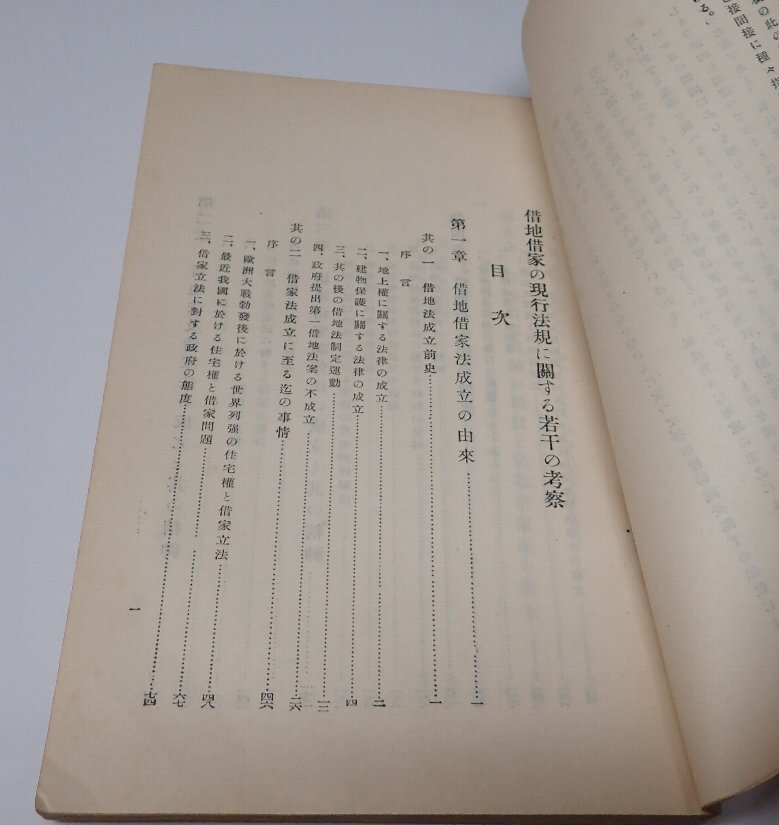 の此の
接間接に種々
る。
借地借家の現行法規に關する若干の考察
目次
第一章 借地借家法成立の由來………一
其の一 借地法成立前史………一
序言
一、地上權に關する法律の成立………二
二、建物保護に關する法律の成立………四
三、其の後の借地法制定運動………一三
四、政府提出第一借地法案の不成立………二六
其の二 借家法成立に至る迄の事情………四六
序言
一、歐洲大戰勃發後に於ける世界列强の住宅權と借家立法………四八
二、最近我國に於ける住宅權と借家問題………六七
三、借家立法に對する政府の態度………七四
一